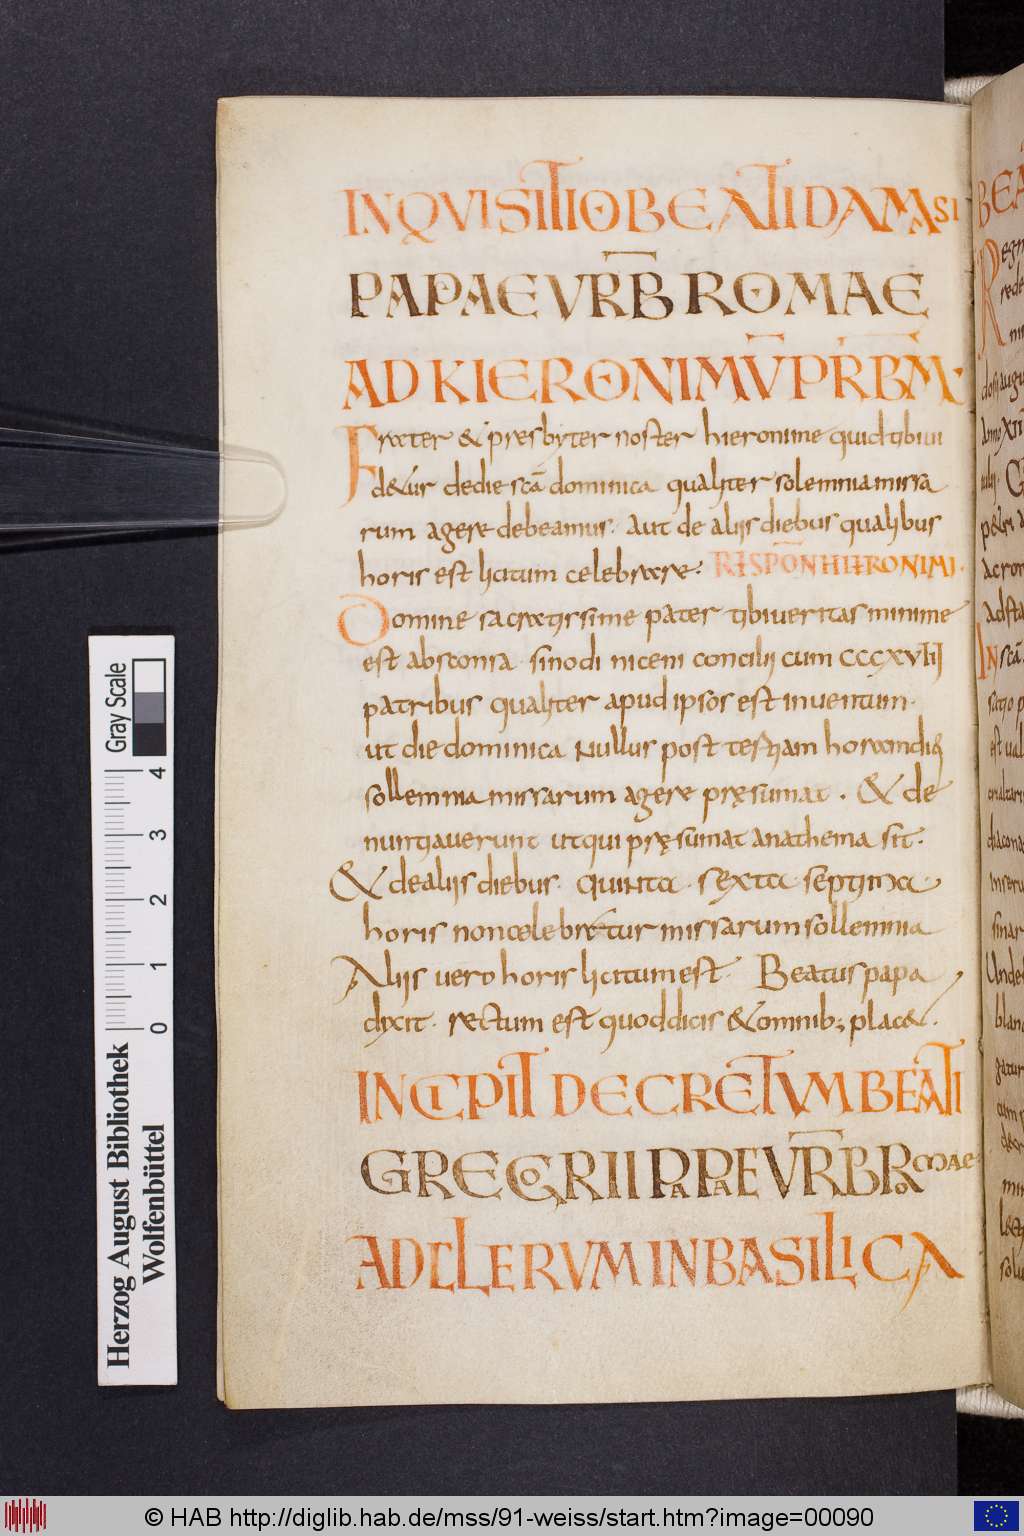 INQVISITIO BEATI DAMASI
PAPAE VRB ROMAE
AD KIERONIMV̅ PRBM̅
Frater & presbyter noster hieronime quid tibi ui
d&ur de die scā dominica qualiter solemnia missa
rum agere debeamus· aut de aliis diebus qualibus
horis est licitum celebrare· RESPON HIERONIMI·
Domine sacratissime pater tibi ueritas minime
est absconsa· sinodi niceni concilii cum CCCXVIII
patribus qualiter apud ipsos est inuentum·
ut die dominica nullus post tertiam horam diei
sollemnia missarum agere pręsumat· & de
nuntiauerunt ut qui pręsumat anathema sit·
& de aliis diebus· quinta· sexta· septima·
horis non celebretur missarum sollemnia
Aliis uero horis licitum est· Beatus papa
dixit· rectum est quod dicis & omnib; plac&·
INCIPIT DECRETVM BEATI
GREGORII PAPAE VRB ROMAE
AD CLERVM IN BASILICA
BEA
Gray Scale
4
3
2
1
0
Herzog August Bibliothek
Wolfenbüttel
© HAB http://diglib.hab.de/mss/91-weiss/start.htm?image=00090